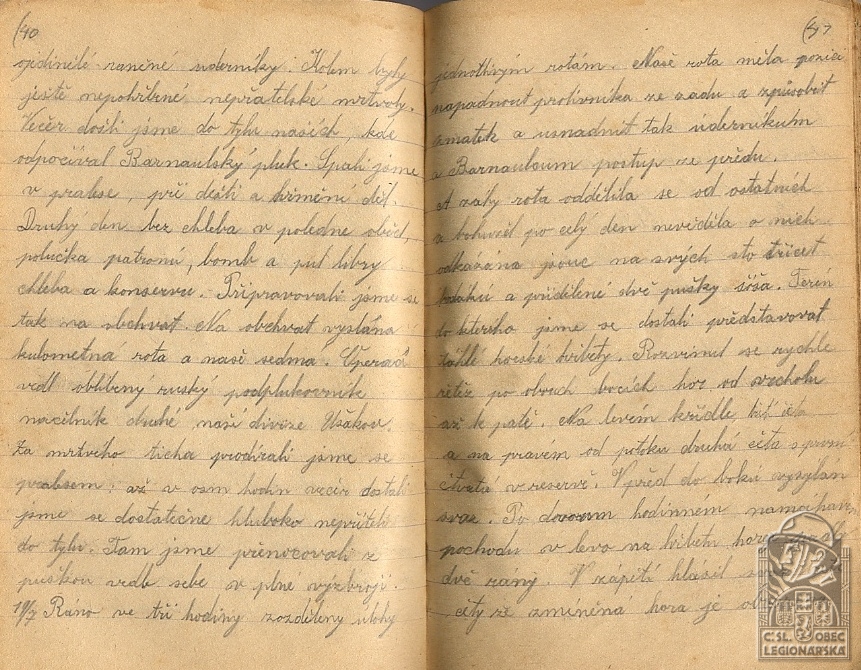 (40
ojedinělé raněné úderníky. Kolem byly
ještě nepohřbené nepřátelské mrtvoly.
Večer došli jsme do tylu našich, kde
odpočíval Barnaulský pluk. Spali jsme
v pralse, při dešti a hřmění děl.
Druhý den bez chleba v poledne oběd,
polučka patronů, bomb a půl libry
chleba a konservu. Připravovali jsme se
tak na obchvat. Na obchvat vyslána
kulometna rota a naše sedma. Operaci
vedl oblíbeny ruský podplukovník
načelník druhé naší divise Ušakov.
Za mrtvého ticha prodírali jsme se
pralsem: až v osm hodin večír dostali
jsme se dostatečne hluboko nepříteli
do tylu. Tam jsme přenocovali z
puškou vedle sebe v plné výzbroji.
19/7 Ráno ve tři hodiny rozděleny úlohy
(47
jednotlivým rotám. Naše rota měla pozici
napadnout protivníka ze zadu a způsobit
zmatek a usnadnit tak úderníkum
a Barnaulcum postup ze předu.
A záhy rota oddělila se od ostatních
a bohužel po celý den nevěděla o nich
odkázána jsouc na svých sto třicet
bodáků a přidělené dvě pušky šóša. Teren
do kterého jsme se dostali představovat
táhlé horské hřbety. Rozvinul se rychle
řetěz po obouch bocích hor od vrcholu
až k patě. Na levém křídle četa
a na pravém od potoku druhá četa s první
čtvrtá v reservě. V před do boků vysylán
svaz. Po dvouhodinném namáhav
pochodu v levo na hřbetu hory
dvě rány. V zápětí hlásil
čety že zmíněná hora je
ČSL. OBEC
LEGIONÁŘSKÁ